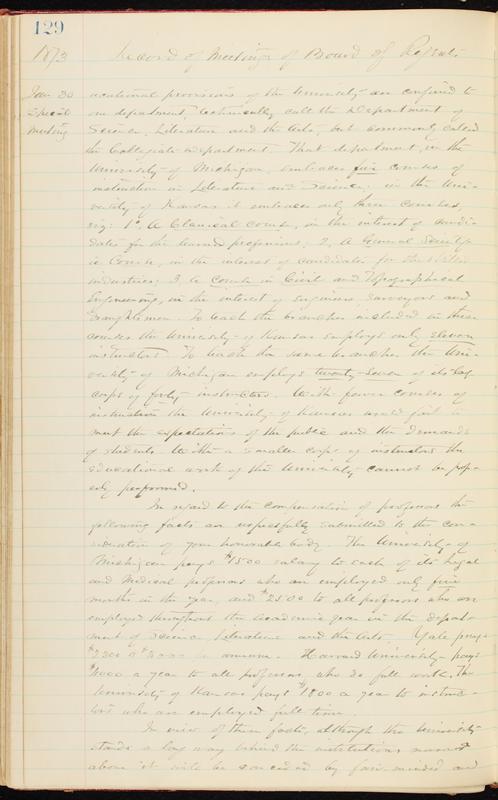 129
1873 Record of Meetings of Board of Regents
Jan 30
Special
Meeting
ucational provisions of the University are confined to
one department, technically call the Department of
Science, Literature and the Arts, but commonly called
the Collegiate Department. That department, in the
University of Michigan, embraces five courses of
instruction in Literature and Science; in the Uni-
versity of Kansas it embraces only three courses,
viz: 1°, A Classical course, in the interest of candi-
dates for the learned professions; 2, A General Scientif-
ic Course, in the interest of candidates for the
industries; 3 A Course in Civil and Topographical
Engineering, in the interest of engineers, surveyors and
Draughtsmen. To teach the branches included in these
courses the University of Kansas employs only eleven
instructors. To teach the same branches the Uni-
versity of Michigan employs twenty-seven of its large
corps of forty instructors. With fewer courses of
instruction the University of Kansas would fail to
meet the expectations of the public and the demands
of students. With a smaller corps of instructors the
educational work of the University cannot be prop-
erly performed.
In regard to the compensation of professors the
following facts are respectfully submitted to the con-
sideration of your honorable body. The University of
Michigan pays $1500 salary to each of its Legal
and Medical professors who are employed only five
months in the year, and $2500 to all professors who are
employed throughout the academic year in the depart-
ment of Science Literature and the Arts. Yale pays
per annum. Harvard University pays
$4000 a year to all professors, who do full work. The
University of Kansas pays $1800 a year to instruc-
tors who are employed full time.
In view of these facts, although the University
stands a long way behind the institutions named
above it will be conceded by fair minded and